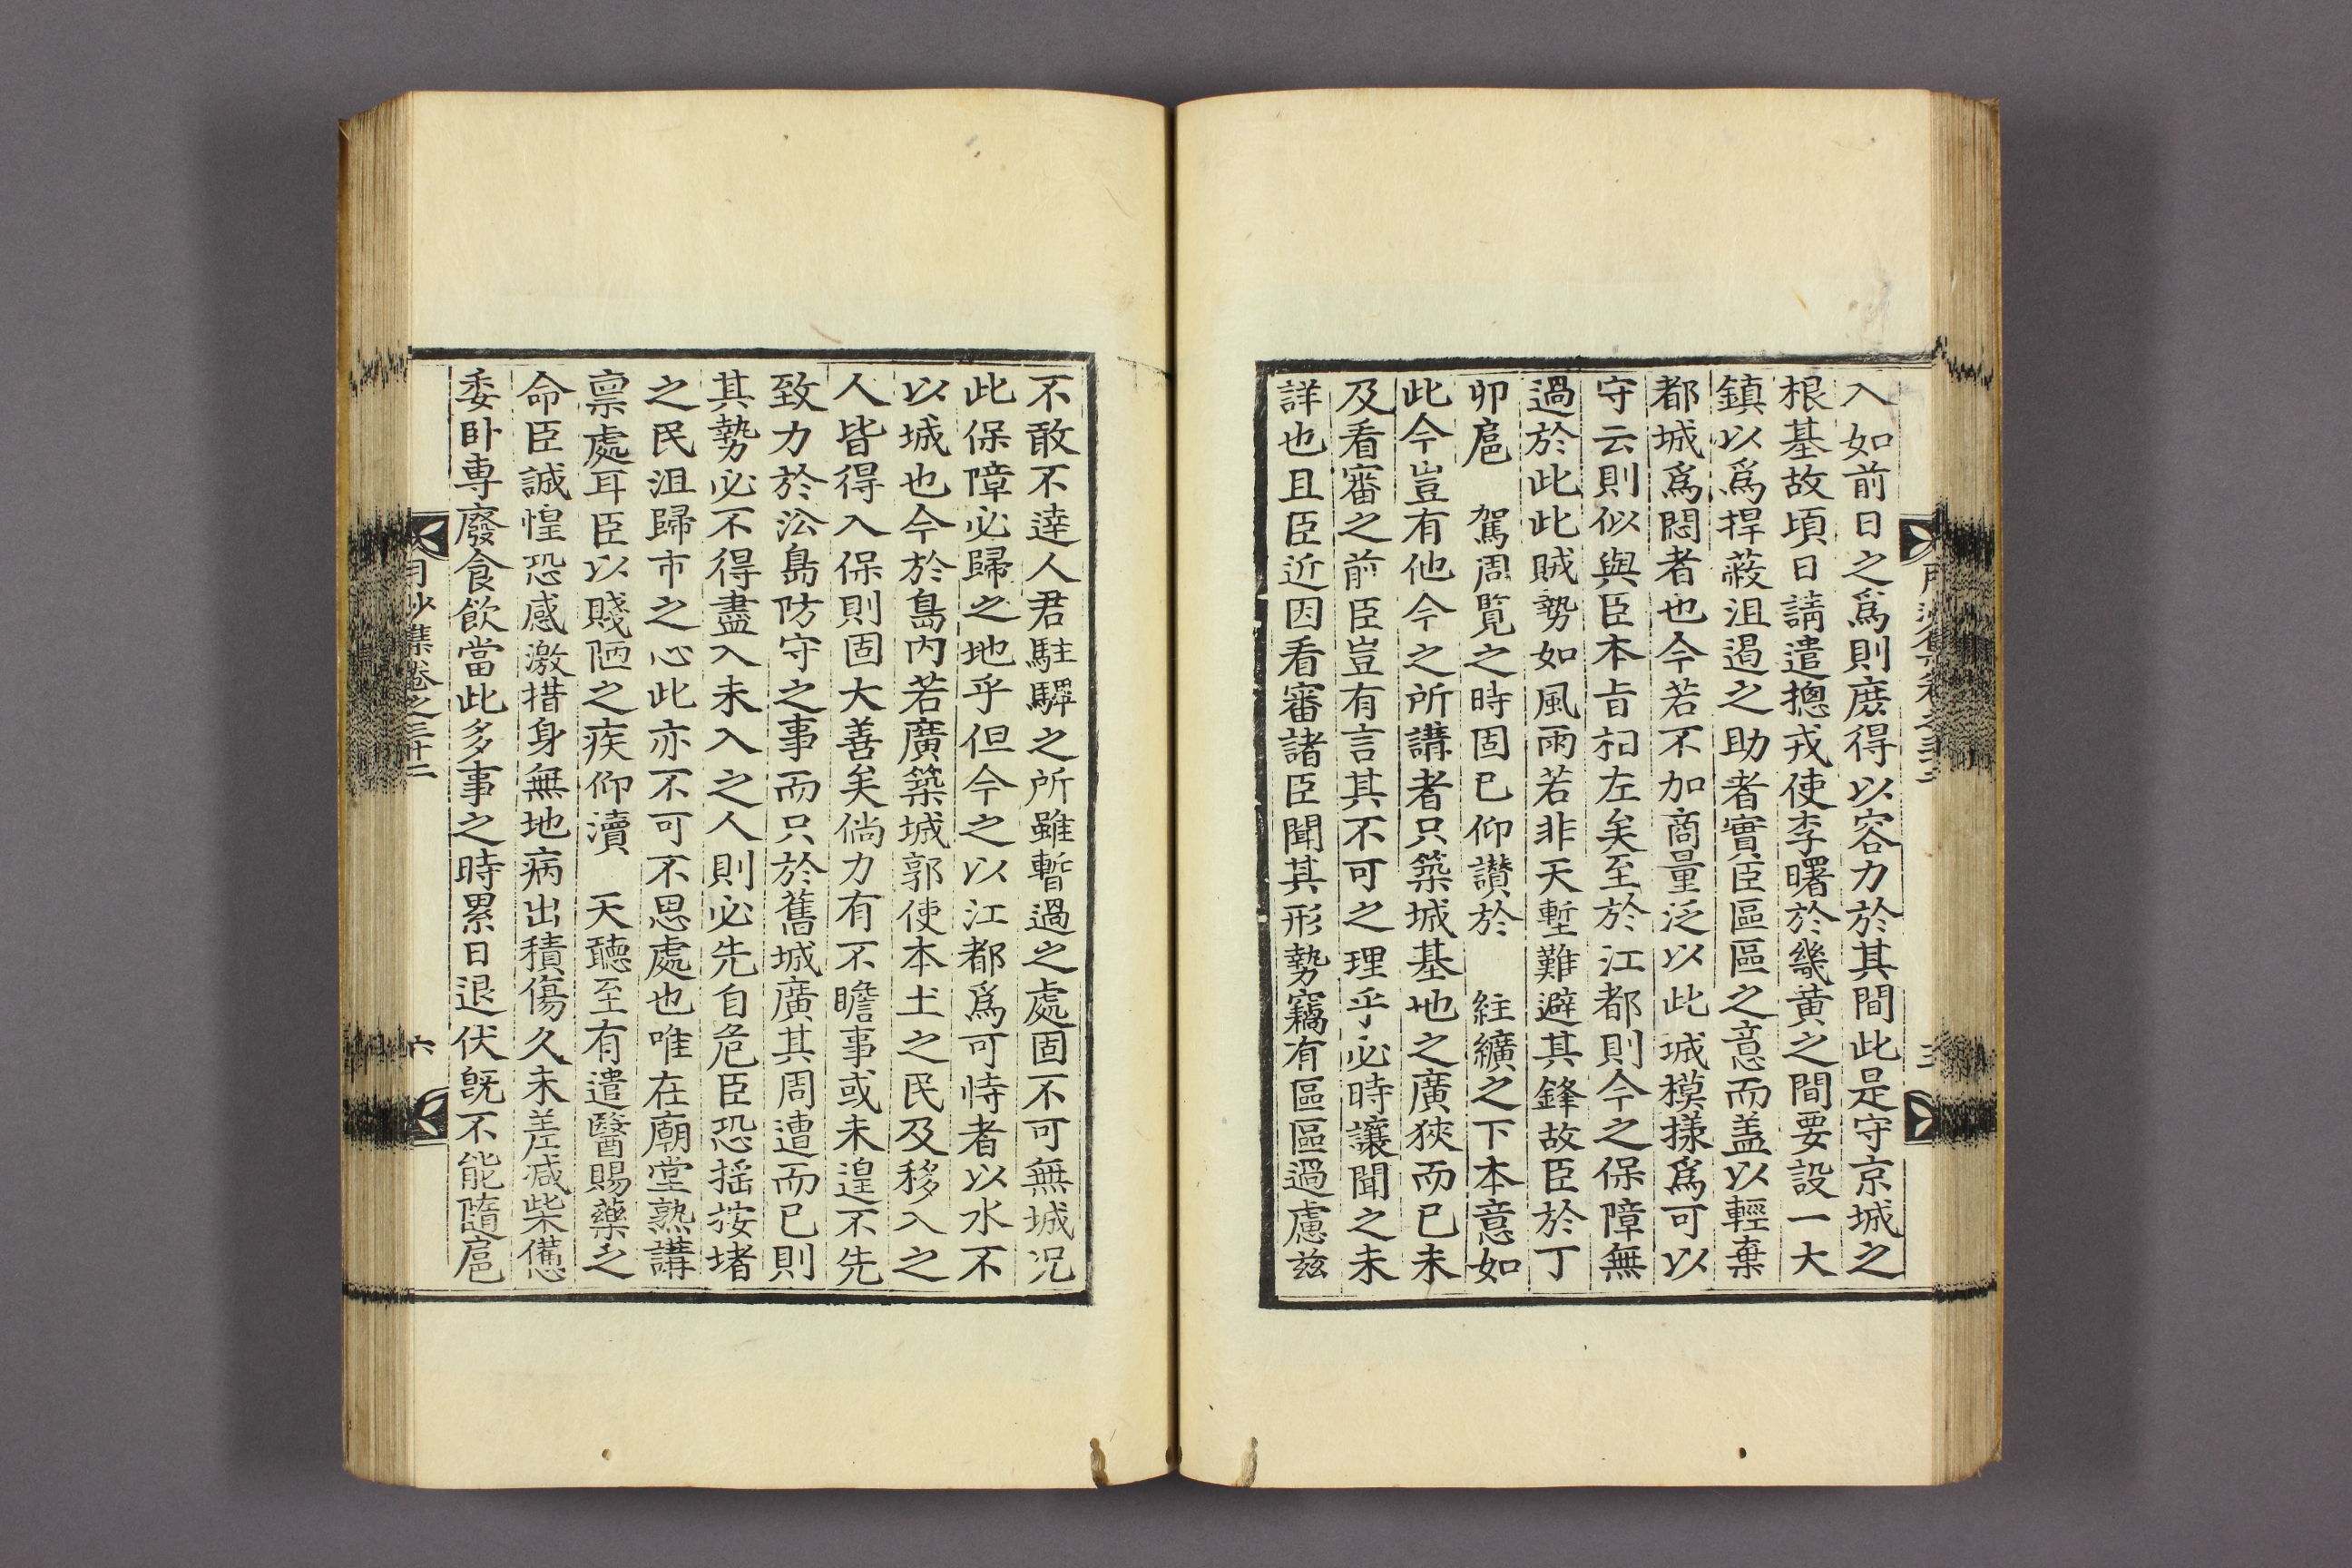 入如前日之爲則庶得以容力於其間此是守京城之
根基故頃日請遣摠戎使李曙於畿黄之間要設一大
鎮以爲捍蔽沮遏之助者實臣區區之意而盖以輕棄
都城爲悶者也今若不加商量泛以此城模㨾爲可以
守云則似與臣本㫖相左矣至於江都則今之保障無
過於此此賊勢如風雨若非天塹難避其鋒故臣於丁
卯扈 駕周覧之時固已仰讃於 紸纊之下本意如
此今豈有他今之所講者只築城基地之廣狹而已未
及看審之前臣豈有言其不可之理乎必時讓聞之未
詳也且臣近因看審諸臣聞其形勢竊有區區過慮玆
不敢不達人君駐驛之所雖暫過之處固不可無城况
此保障必歸之地乎但今之以江都爲可恃者以水不
以城也今於島内若廣築城郭使本土之民及移入之
人皆得入保則固大善矣倘力有不瞻事或未遑不先
致力於㳂島防守之事而只於舊城廣其周遭而已則
其勢必不得盡入未入之人則必先自危臣恐揺按堵
之民沮歸市之心此亦不可不思處也唯在廟堂熟講
禀處耳臣以賤陋之疾仰瀆 天聽至有遣醫賜藥之
命臣誠惶恐感激措身無地病出積傷久未差减柴憊
委卧專廢食飲當此多事之時累日退伏旣不能隨扈
月沙集卷之三十二
六